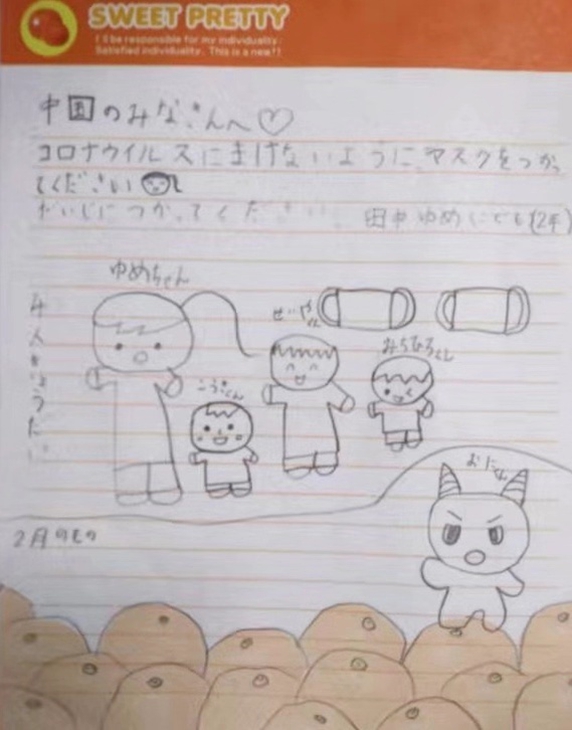 SWEET PRETTY
I'll be responsible for my individuality.
Satisfied individuality. This is a new!!
中国のみなさんへ♡
コロナウイルスにまけないように、マスクをつかっ
てください
だいじにつかってください
田中 ゆめ こども(2年)
ゆめちゃん
4人きょうだい
せいやくん
こうきくん
みちひろくん
おにくん
2月のもの